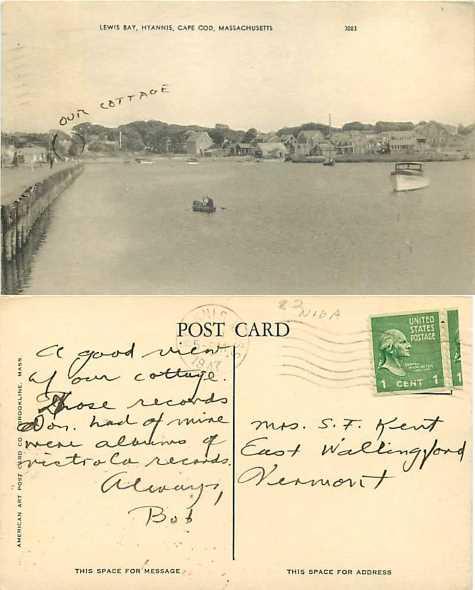 LEWIS BAY, HYANNIS, CAPE COD, MASSACHUSETTS 3083
OUR COTTAGE
POST CARD
22
NIDA
1947
UNITED
STATES
POSTAGE
1 CENT 1
A good view
of our cottage.
Those records
Don. had of mine
were albums of
victrola records.
Always,
Bob
Mrs. S. F. Kent
East Wallingford
Vermont
AMERICAN ART POST CARD CO., BROOKLINE, MASS.
THIS SPACE FOR MESSAGE
THIS SPACE FOR ADDRESS